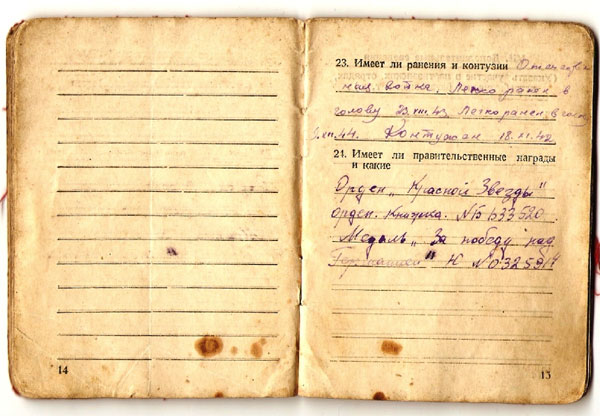 23. Имеет ли ранения и контузии Отечествен
ная война, Легко ранен в
голову 23.VIII.43, Легко ранен в
.XII.44. Контужен 18.XI.42
24. Имеет ли правительственные награды
и какие
Орден „Красной Звезды"
орден. Книжка. № Б 633520
Медаль „За победу над
Германией" Н № 0325917
14
13